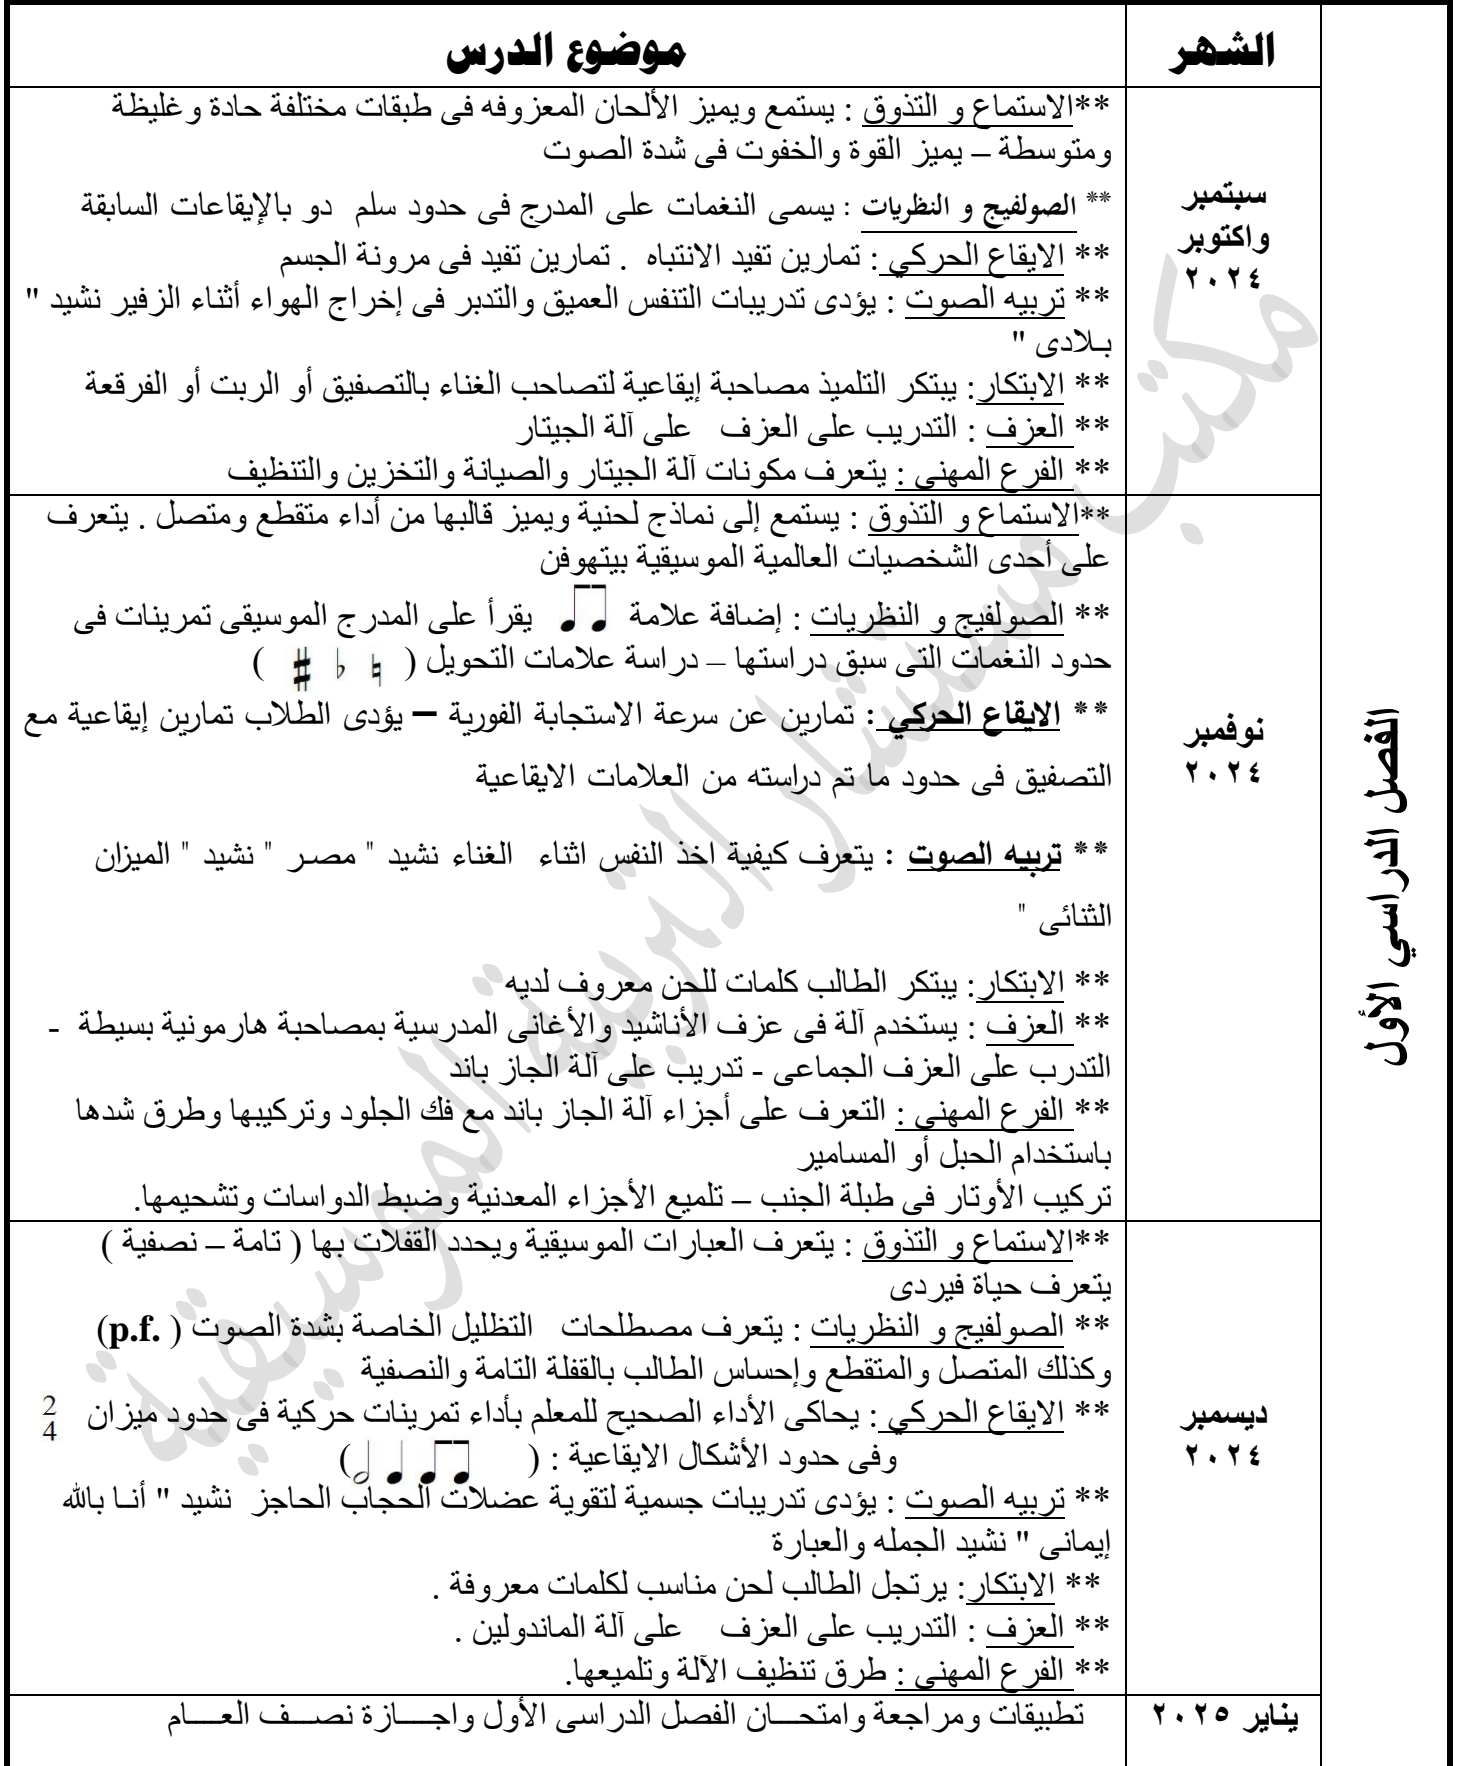 الشهر
موضوع الدرس
الفصل الدراسي الأول
سبتمبر
واكتوبر
٢٠٢٤
**الاستماع و التذوق : يستمع ويميز الألحان المعزوفه فى طبقات مختلفة حادة وغليظة
ومتوسطة – يميز القوة والخفوت فى شدة الصوت
** الصولفيج و النظريات : يسمى النغمات على المدرج فى حدود سلم دو بالإيقاعات السابقة
** الايقاع الحركي : تمارين تفيد الانتباه . تمارين تفيد فى مرونة الجسم
** تربيه الصوت : يؤدى تدريبات التنفس العميق والتدبر فى إخراج الهواء أثناء الزفير نشيد "
بـلادى "
** الابتكار: يبتكر التلميذ مصاحبة إيقاعية لتصاحب الغناء بالتصفيق أو الربت أو الفرقعة
** العزف : التدريب على العزف على آلة الجيتار
** الفرع المهنى : يتعرف مكونات آلة الجيتار والصيانة والتخزين والتنظيف
نوفمبر
٢٠٢٤
**الاستماع و التذوق : يستمع إلى نماذج لحنية ويميز قالبها من أداء متقطع ومتصل . يتعرف
على أحدى الشخصيات العالمية الموسيقية بيتهوفن
** الصولفيج و النظريات : إضافة علامة يقرأ على المدرج الموسيقى تمرينات فى
حدود النغمات التى سبق دراستها – دراسة علامات التحويل ( ♮ ♭ ♯ )
** الايقاع الحركي : تمارين عن سرعة الاستجابة الفورية – يؤدى الطلاب تمارين إيقاعية مع
التصفيق فى حدود ما تم دراسته من العلامات الايقاعية
** تربيه الصوت : يتعرف كيفية اخذ النفس اثناء الغناء نشيد " مصر " نشيد " الميزان
الثنائى "
** الابتكار: يبتكر الطالب كلمات للحن معروف لديه
** العزف : يستخدم آلة فى عزف الأناشيد والأغانى المدرسية بمصاحبة هارمونية بسيطة -
التدرب على العزف الجماعى - تدريب على آلة الجاز باند
** الفرع المهنى : التعرف على أجزاء آلة الجاز باند مع فك الجلود وتركيبها وطرق شدها
باستخدام الحبل أو المسامير
تركيب الأوتار فى طبلة الجنب – تلميع الأجزاء المعدنية وضبط الدواسات وتشحيمها.
ديسمبر
٢٠٢٤
**الاستماع و التذوق : يتعرف العبارات الموسيقية ويحدد القفلات بها ( تامة – نصفية )
يتعرف حياة فيردى
** الصولفيج و النظريات : يتعرف مصطلحات التظليل الخاصة بشدة الصوت ( p.f.)
وكذلك المتصل والمتقطع وإحساس الطالب بالقفلة التامة والنصفية
** الايقاع الحركي : يحاكى الأداء الصحيح للمعلم بأداء تمرينات حركية فى حدود ميزان 2/4
وفى حدود الأشكال الايقاعية : ( ♫ ♩ 𝅗𝅥)
** تربيه الصوت : يؤدى تدريبات جسمية لتقوية عضلات الحجاب الحاجز نشيد " أنـا بالله
إيمانى " نشيد الجمله والعبارة
** الابتكار: يرتجل الطالب لحن مناسب لكلمات معروفة .
** العزف : التدريب على العزف على آلة الماندولين .
** الفرع المهنى : طرق تنظيف الآلة وتلميعها.
يناير ٢٠٢٥
تطبيقات ومراجعة وامتحـــان الفصل الدراسى الأول واجــــازة نصـــف العــــام
مكتب مستشار التربية الموسيقية